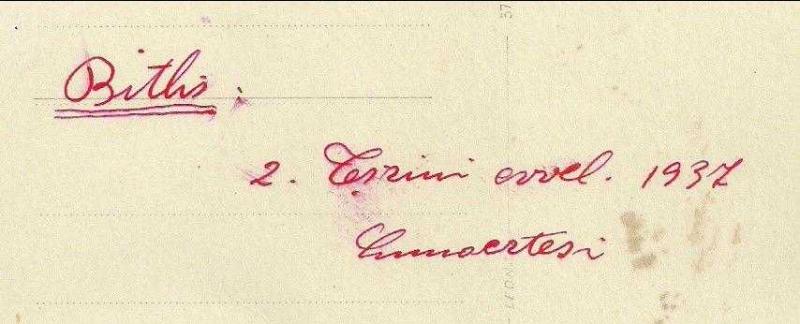 Bitlis :
2. Teşrini evvel. 1937
Cumaertesi
37
LEON